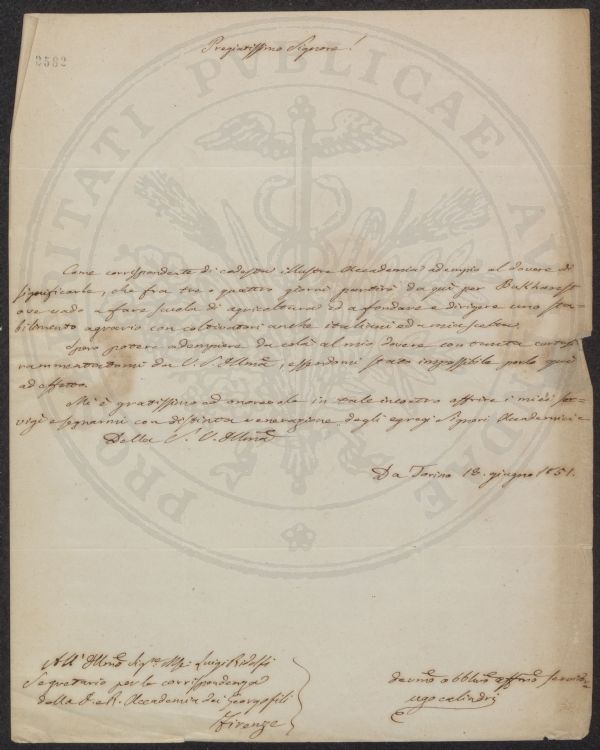 2582
Pregiatissimo Signore!
Come corrispondente di codesta illustre Accademia adempio al dovere di
significarle, che fra tre o quattro giorni partirò da quì per Bukharest
ove vado a fare scuola di agricoltura ed a fondare e dirigere uno sta-
bilimento agrario con coltivatori anche italiani ed a mia scelta.
Spero potere adempiere da colà al mio dovere con tanta cortesia
rammentatomi da V. S. Illma, essendomi stato impossibile porlo quì
ad effetto.
Mi è gratissimo ed onorevole in tale incontro offrire i miei ser-
vigi e segnarmi con distinta venerazione degli egregi Signori Accademici e
Della S. V. Illma
Da Torino 18. giugno 1851.
All' Illmo Sigre Mse Luigi Ridolfi
Segretario per la corrispondenza
della I. e R. Accademia dei Georgofili
Firenze
devmo obblmo affmo servid
ugo calindri
PROSPERITATI PVBLICAE AVGENDAE